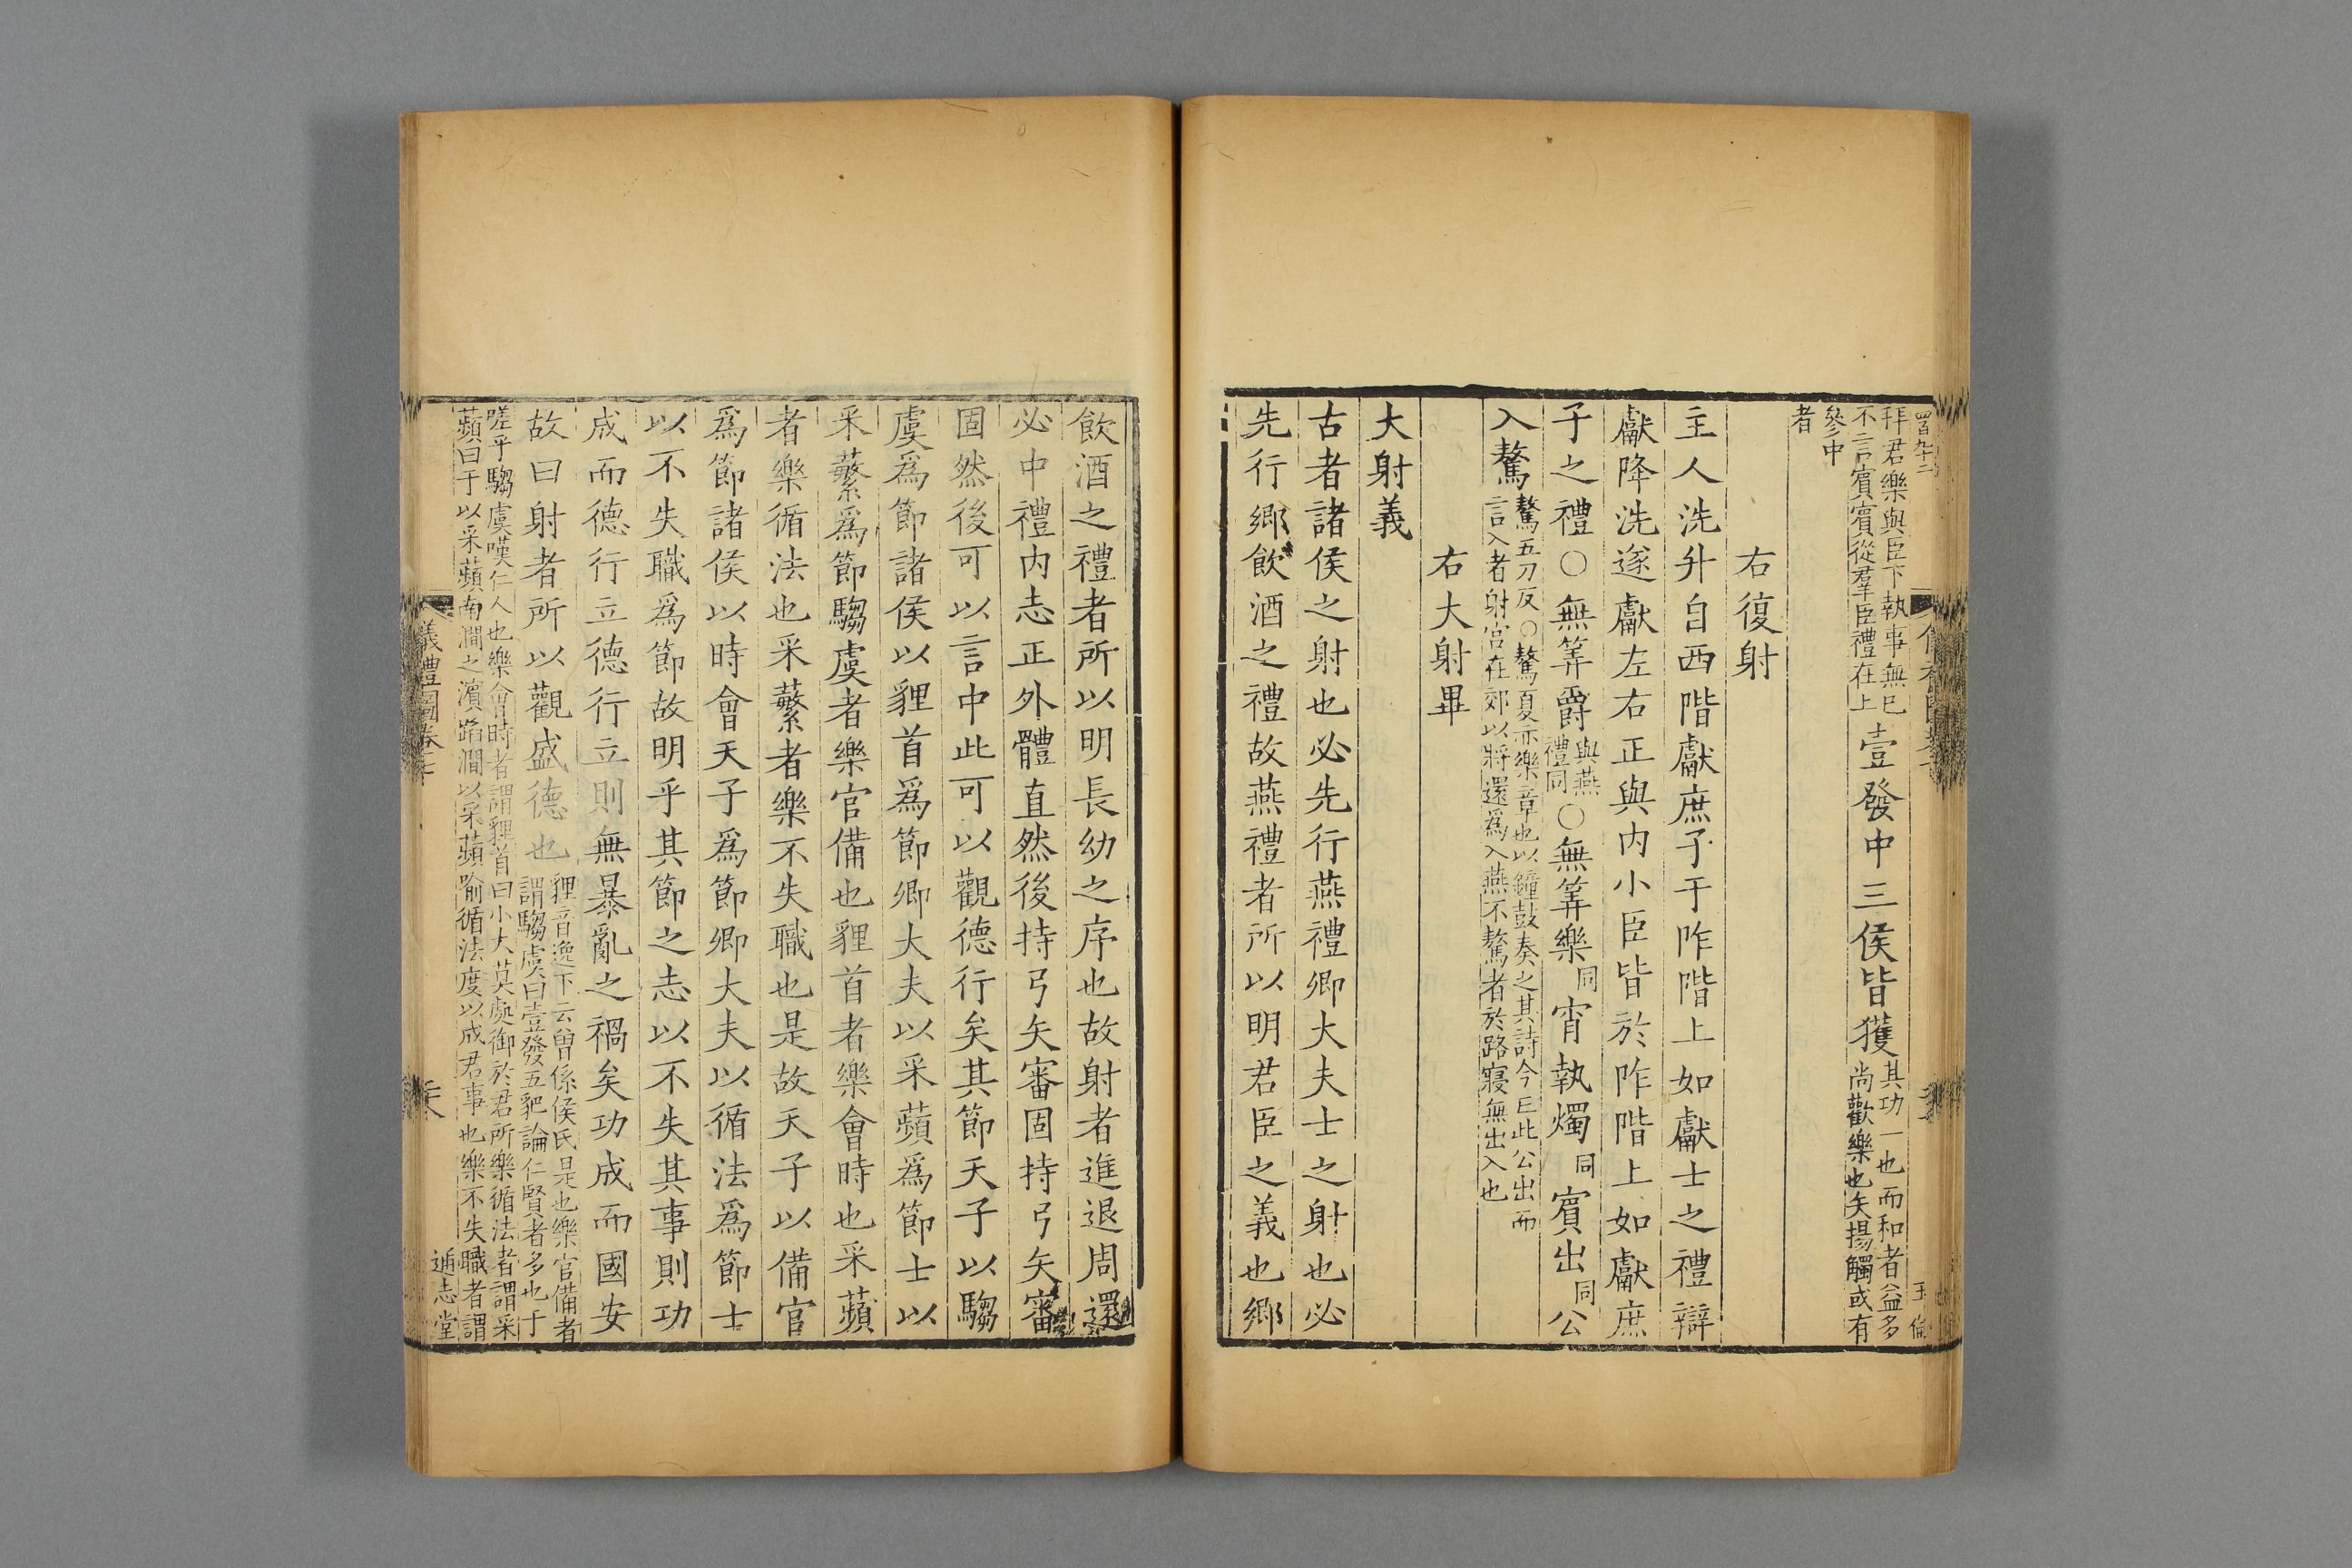 拜君樂與臣下執事無已
不言賓賓從羣臣禮在上
壹發中三侯皆獲
其功一也而和者益多
尚歡樂也矢揚觸或有
參中
者
右復射
主人洗升自西階獻庶子于阼階上如獻士之禮辯
獻降洗遂獻左右正與内小臣皆於阼階上如獻庶
子之禮○無筭爵
與燕
禮同
○無筭樂同宵執燭同賓出同公
入驁
驁五刀反○驁夏亦樂章也以鐘鼓奏之其詩今亡此公出而
言入者射宮在郊以將還爲入燕不驁者於路寢無出入也
右大射畢
大射義
古者諸侯之射也必先行燕禮卿大夫士之射也必
先行鄉飲酒之禮故燕禮者所以明君臣之義也鄉
飲酒之禮者所以明長幼之序也故射者進退周還
必中禮内志正外體直然後持弓矢審固持弓矢審
固然後可以言中此可以觀德行矣其節天子以騶
虞爲節諸侯以貍首爲節卿大夫以采蘋爲節士以
采蘩爲節騶虞者樂官備也貍首者樂會時也采蘋
者樂循法也采蘩者樂不失職也是故天子以備官
爲節諸侯以時會天子爲節卿大夫以循法爲節士
以不失職爲節故明乎其節之志以不失其事則功
成而德行立德行立則無暴亂之禍矣功成而國安
故曰射者所以觀盛德也
貍音逸下云曽係侯氏是也樂官備者
謂騶虞曰壹發五豝論仁賢者多也于
嗟乎騶虞嘆仁人也樂會時者謂貍首曰小大莫處御於君所樂循法者謂采
蘋曰于以采蘋南澗之濱蹈澗以采蘋喻循法度以成君事也樂不失職者謂
儀禮圖卷七
通志堂